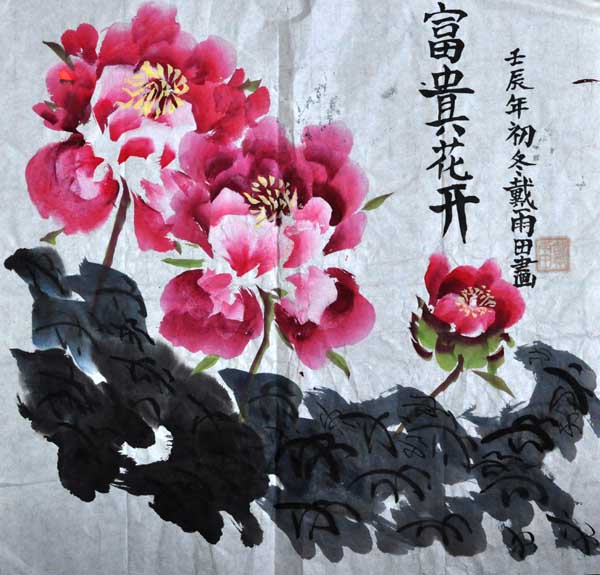 富貴花开
壬辰年初冬戴雨田畫